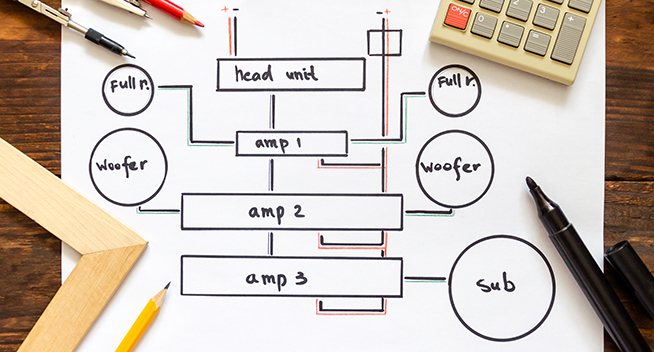 ON/C
+ -
- +
head unit
Full r.
Full r.
amp 1
woofer
woofer
amp 2
amp 3
Sub